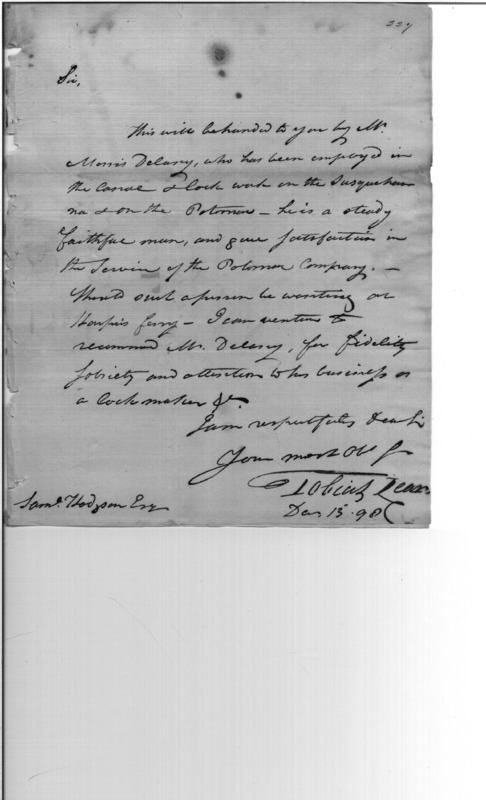 227
Sir,
This will be handed to you by Mr.
Morris Delany, who has been employ'd in
the Canal & Lock work on the Susquehan
na & on the Potomac – he is a steady
faithful man, and gave satisfaction in
the Service of the Potomac Company. –
Should such a person be wanting at
Harper's ferry – I can venture to
recommend Mr. Delany, for fidelity
sobriety and attention to his business as
a lock maker &c.
I am respectfully Dear Sir
Your most Ob. S
Tobias Lear.
Saml. Hodgson Esq
Dec 13 98